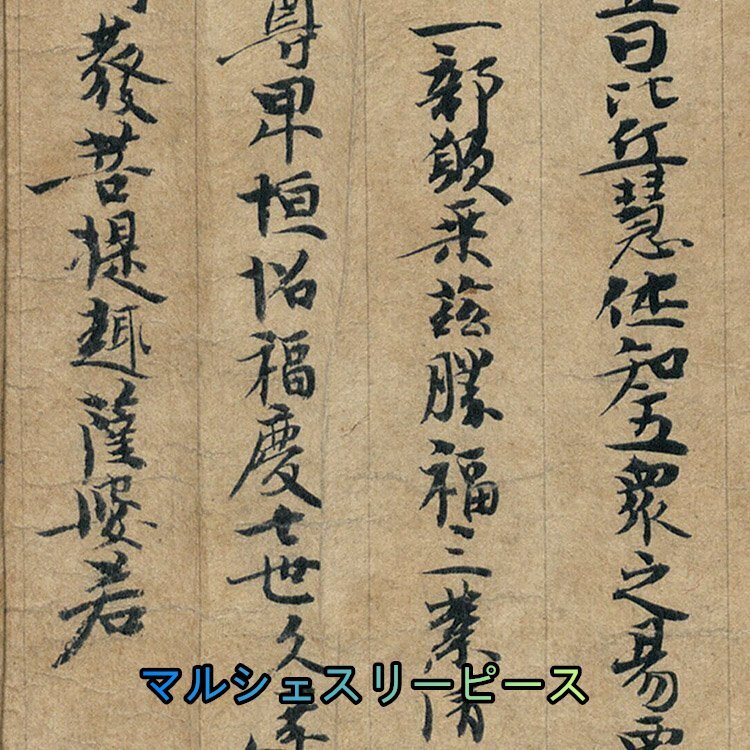 日比丘慧知五衆之易
一部願乗茲勝福三業清
尊卑恒招福慶七世久
發菩提趣薩婆若
マルシェスリーピース